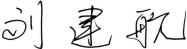 刘建航